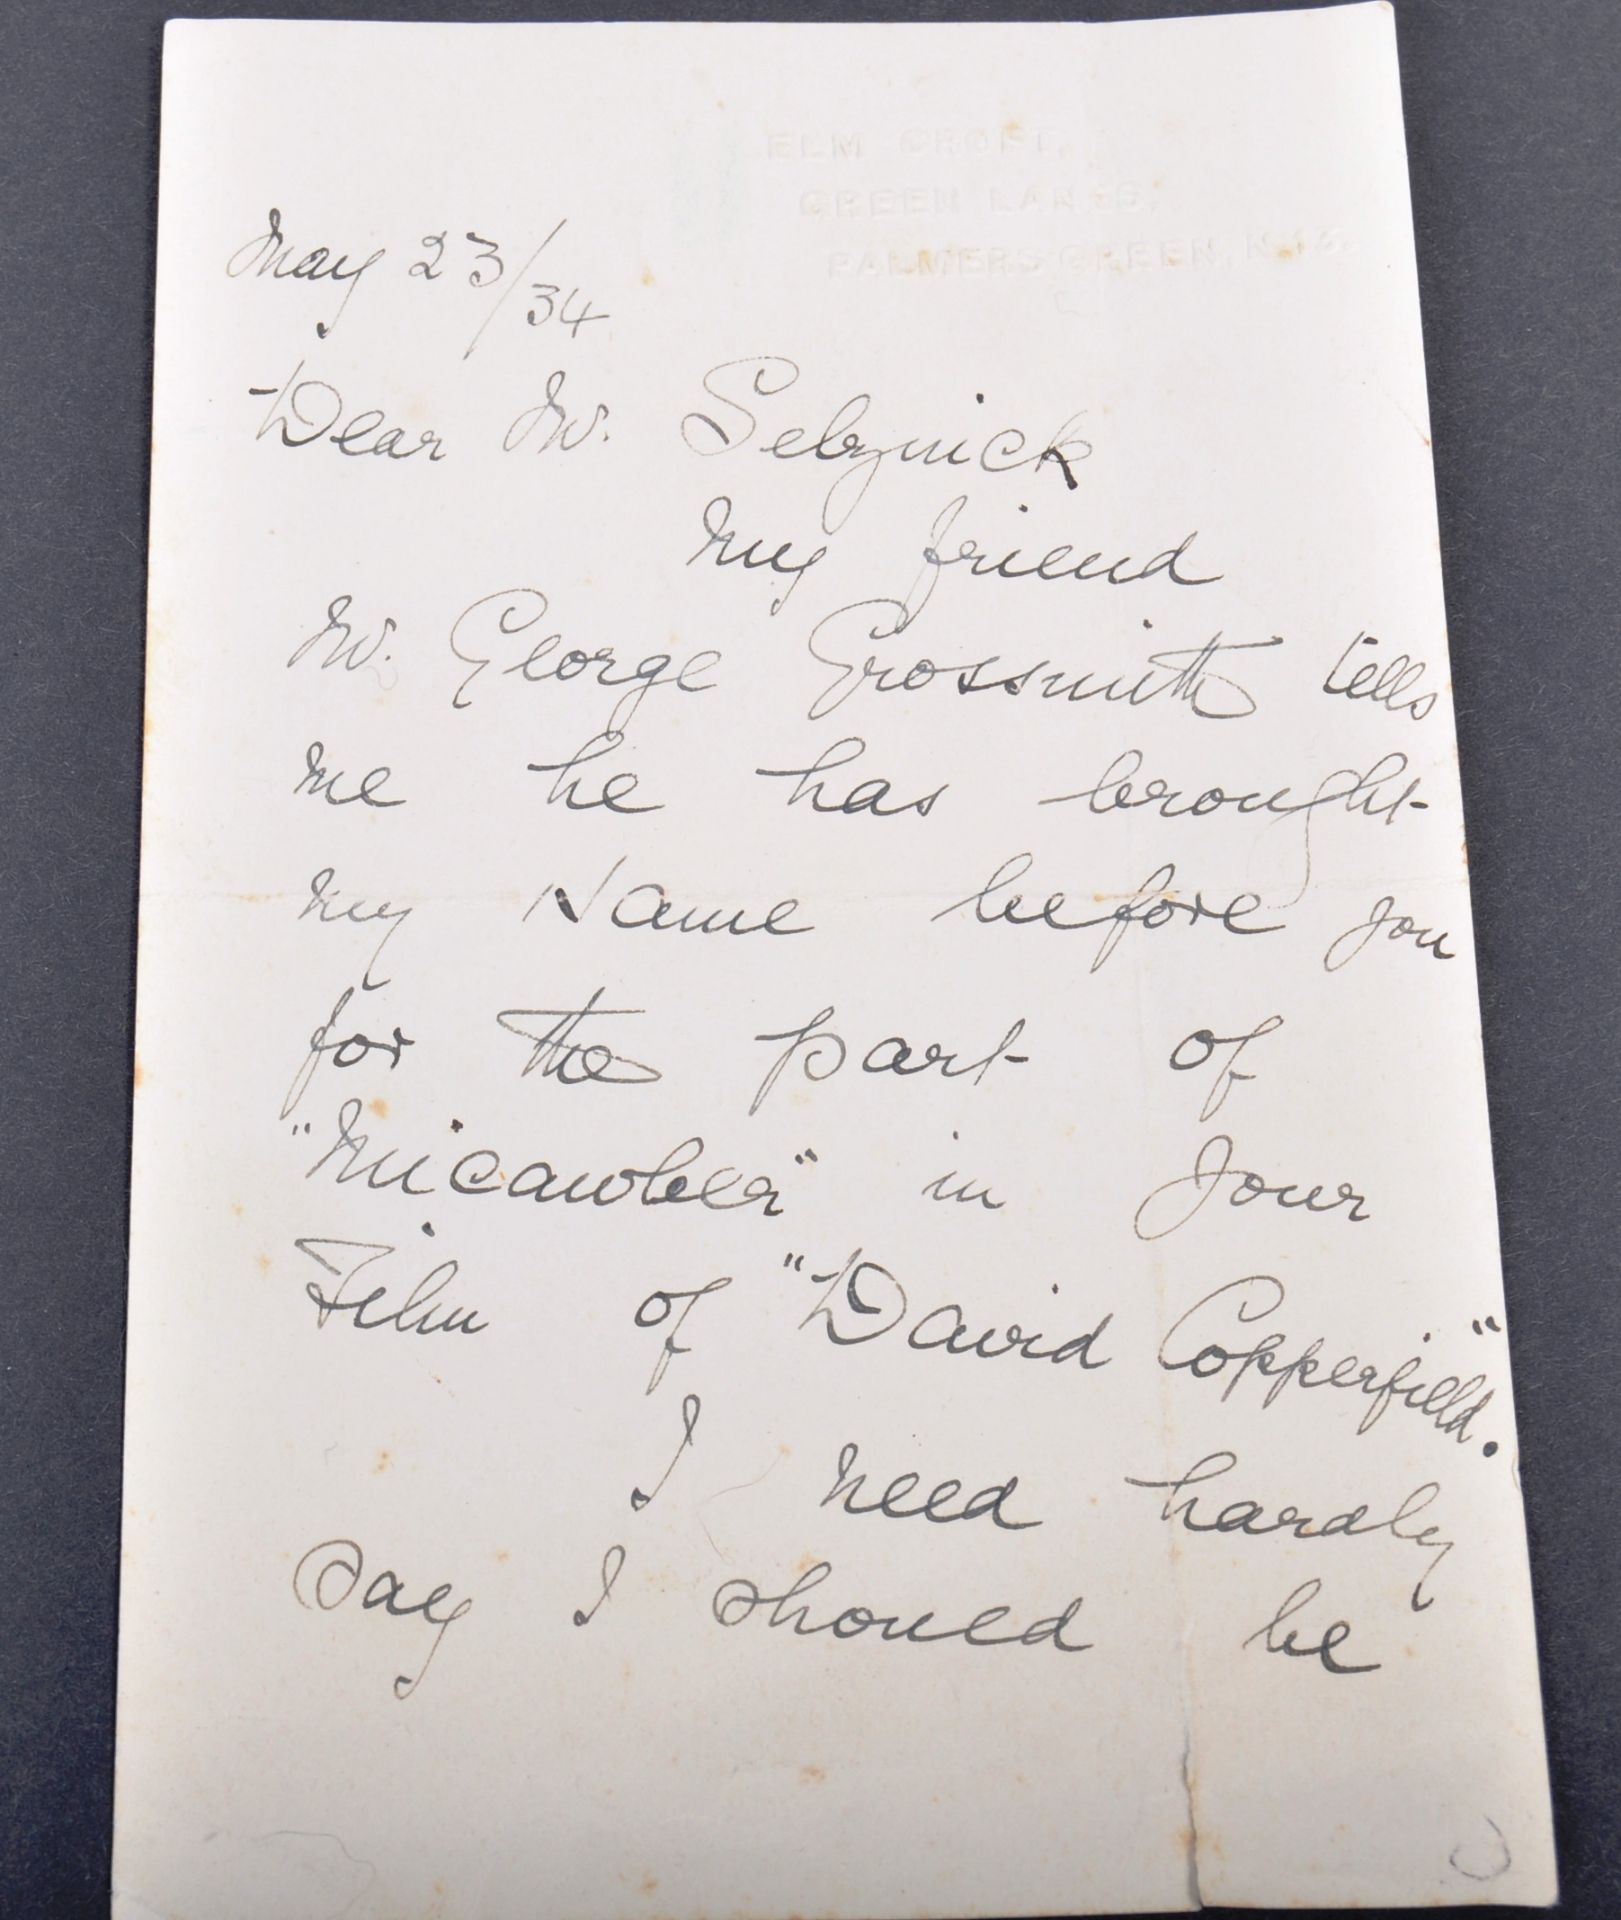 ELM CROFT,
GREEN LANES,
PALMERS GREEN, N.13.
May 23/34
Dear Mr. Selznick
My friend
Mr. George Grossmith tells
me he has brought
my Name before you
for the part of
"Micawber" in your
Film of "David Copperfield."
I need hardly
say I should be